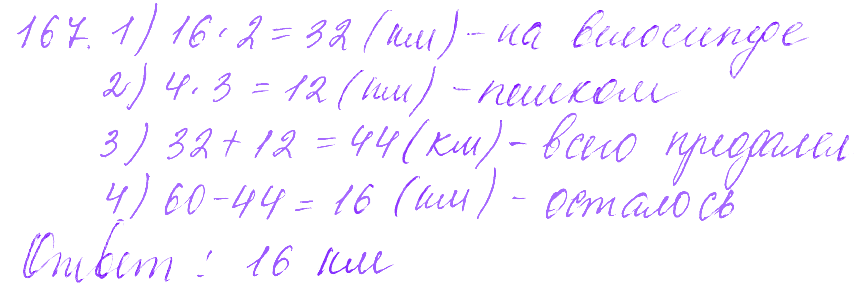 167. 1) 16 · 2 = 32 (км) - на велосипеде
2) 4 · 3 = 12 (км) - пешком
3) 32 + 12 = 44 (км) - всего преодолел
4) 60 - 44 = 16 (км) - осталось
Ответ: 16 км